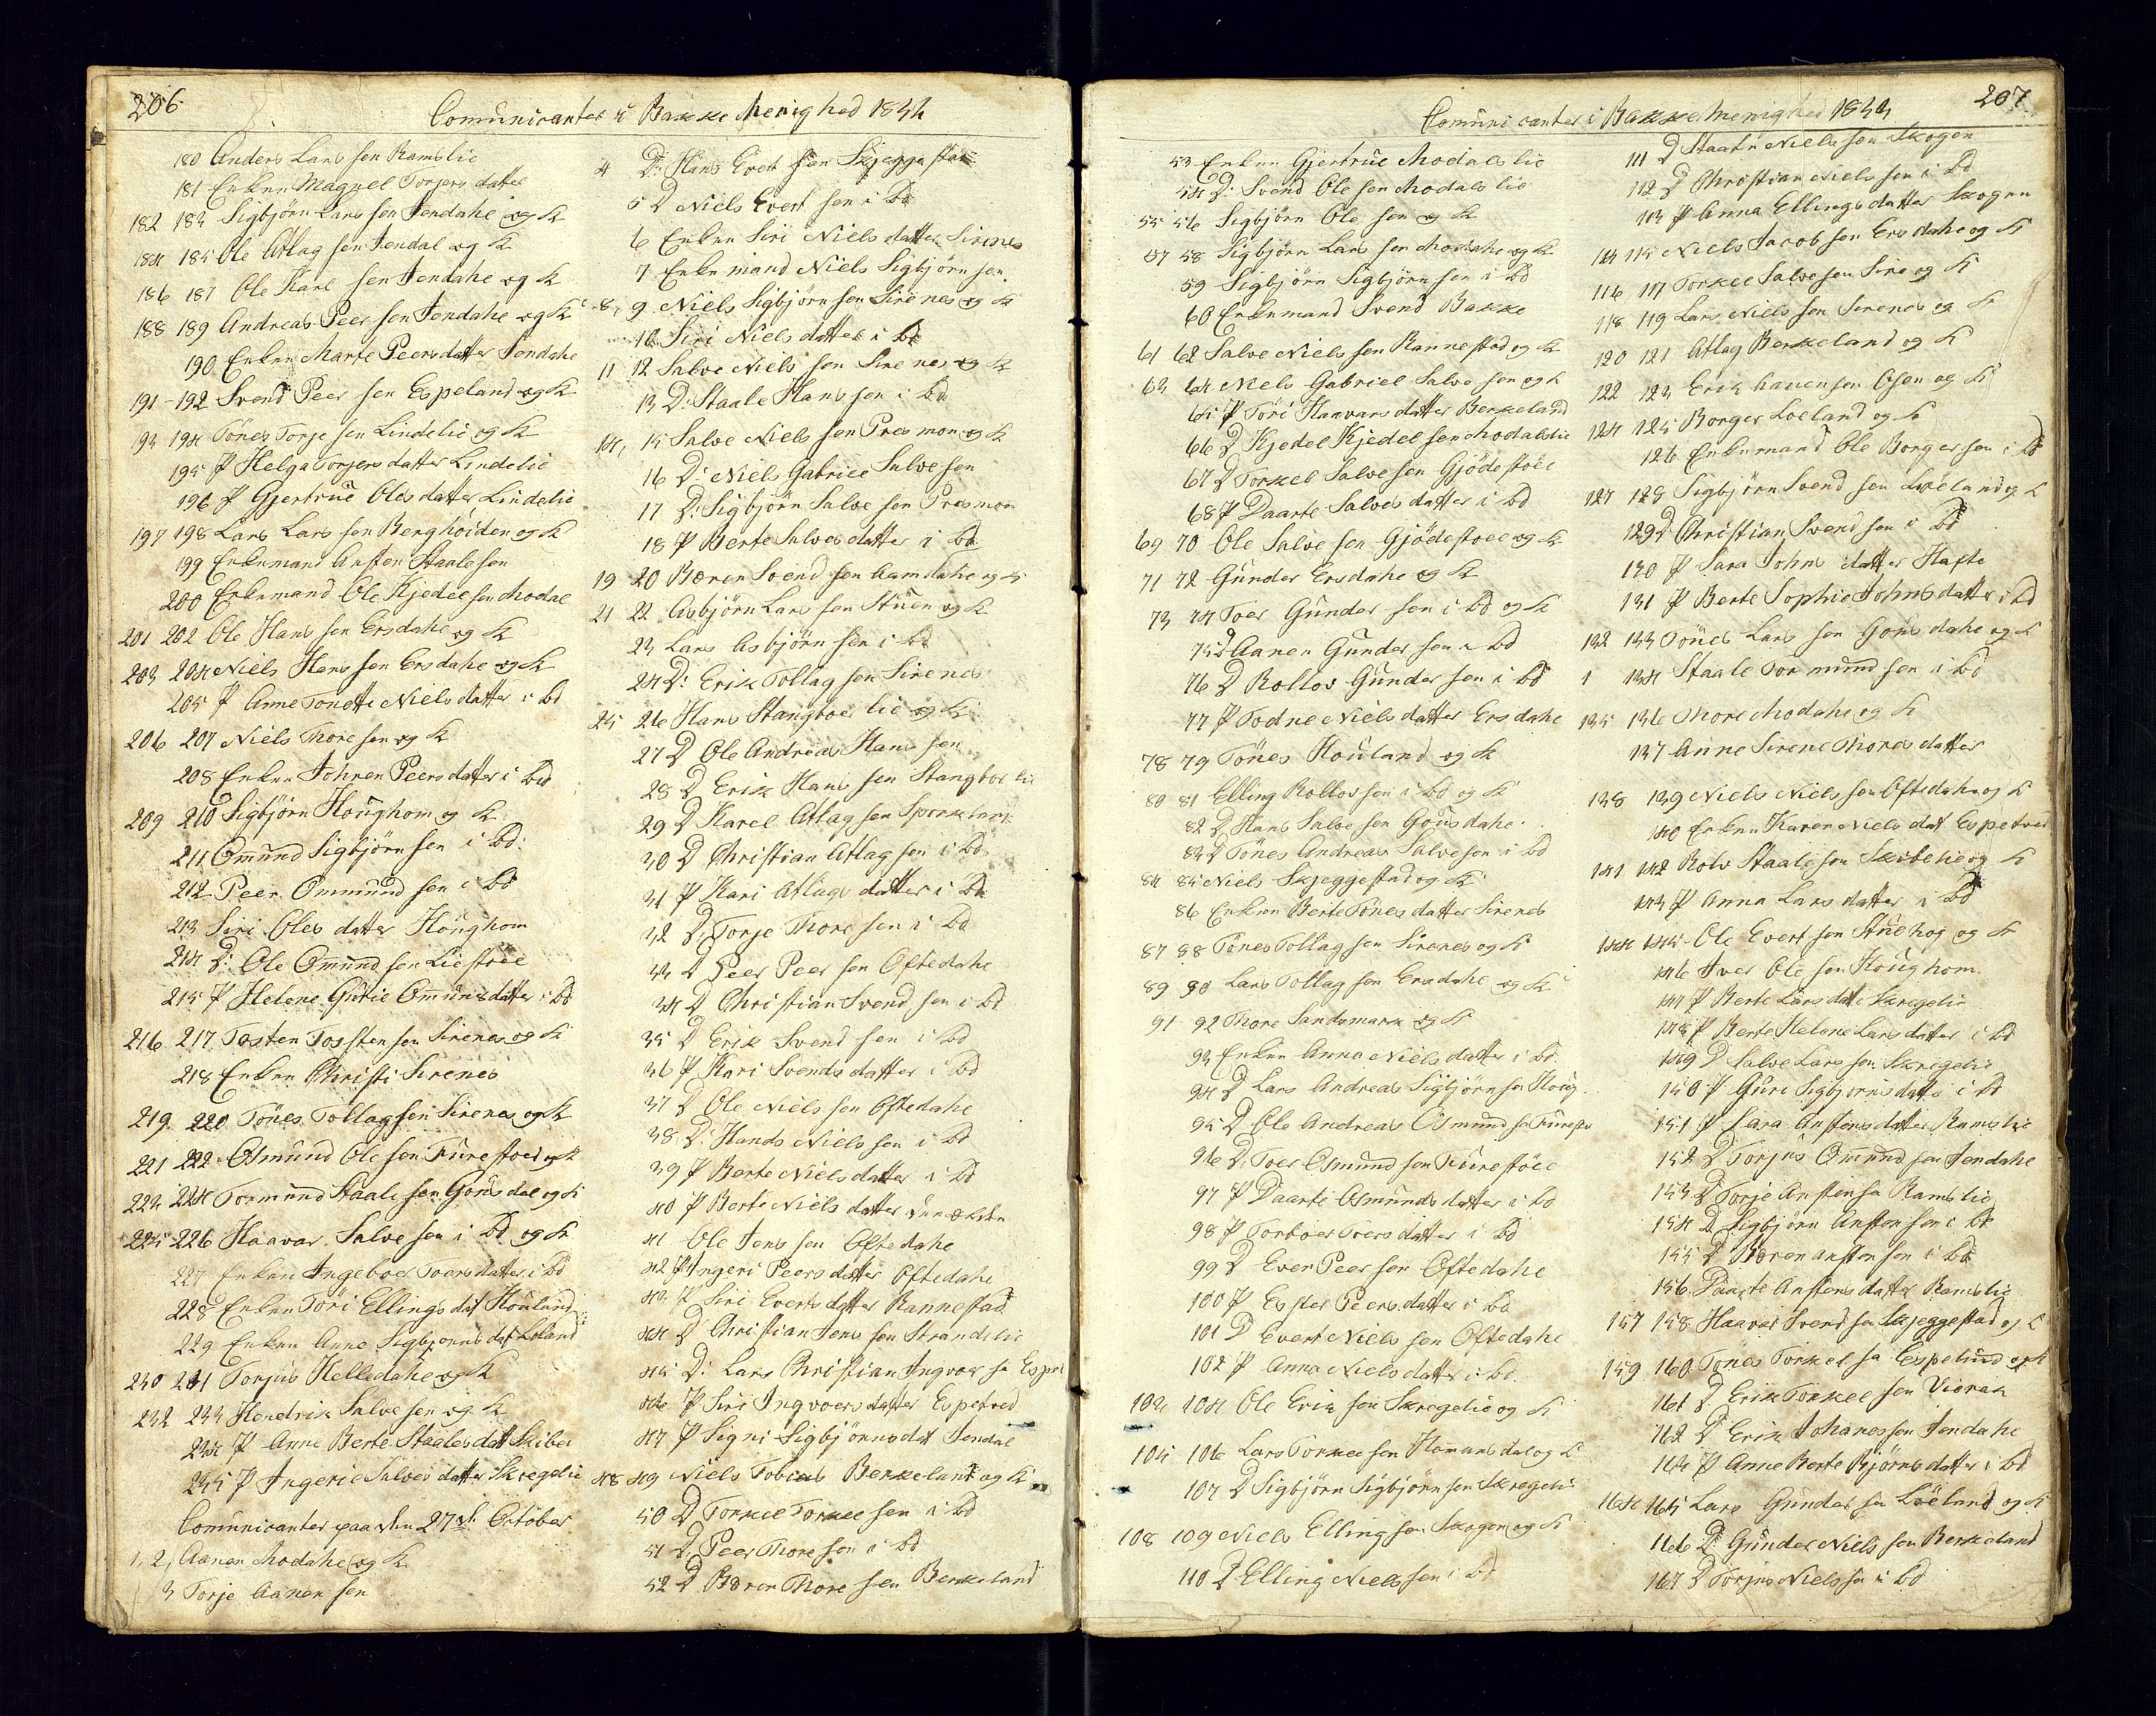 206
Comunicanter i Bakke Menighed 1834
180 Anders Lars sen Ramslie
181 Enken Magnel Torjers datter
182 183 Sigbjørn Lars sen Jendahl og K
184 185 Ole Atlag sen Jendal og K
186 187 Ole Karl sen Jendahl og K
188 189 Andreas Peer sen Jendahl og K
190 Enken Marte Peersdatter Jendahl
191 - 192 Svend Peer sen Espeland og K
193 194 Tønes Torje sen Lindelie og K
195 P Helga Torjersdatter Lindelie
196 P Gjertrue Olesdatter Lindelie
197 198 Lars Lars sen Berghøiden og K
199 Enkemand Ansten Staalesen
200 Enkemand Ole Kjedel sen Modal
201 202 Ole Hans sen Ersdahl og K
203 204 Niels Hans sen Ersdahl og K
205 P Anne Tonette Nielsdatter i bd
206 207 Niels Thore sen og K
208 Enken Johren Peersdatter i bd
209 210 Sigbjørn Houghom og K
211 Omund Sigbjørn sen i bd:
212 Peer Ommund sen i bd
213 Siri Oles datter Houghom
214 D: Ole Omund sen Liestøel
215 P Helene Gurie Omunsdatter i bd
216 217 Tosten Tossten sen Sirenes og K
218 Enken Christi Sirenes
219 220 Tønes Tollagsen Sirenes og K
221 222 Osmund Ole sen Furestøel og K
223 224 Tormund Staale sen Gousdal og K
225 226 Haavar Salve sen i bd og K
227 Enken Ingeboer Toersdatter i bd
228 Enken Tøri Ellings dat Houland
229 Enken Anne Sigbjørns dat Loland
230 231 Torjus Helledahl og K
232 233 Hendrik Salve sen og K
234 P Anne Berte Staalesdat Skibel
235 P Ingerie Salves datter Skregelie
Comunicanter paa den 27de October
1, 2, Aanen Modahl og K
3 Torje Aanen sen
4 D: Hans Evert sen Skjeggestad
5 D Niels Evert sen i bd
6 Enken Siri Niels datter Sirenes
7 Enkemand Niels Sigbjørn sen
8, 9 Niels Sigbjørn sen Sirenes og K
10 Siri Niels datter i bd
11 12 Salve Niels sen Sirenes og K
13 D: Staale Hans sen i bd
14, 15 Salve Niels sen Presmon og K
16 D: Niels Gabriel Salve sen
17 D: Sigbjørn Salve sen Presmon
18 P Berte Salves datter i bd
19 20 Boren Svend sen Aamdahl og K
21 22 Asbjørn Lars sen Stuen og K
23 Lars Asbjørn sen i bd
24 D: Erik Tollag sen Sirenes
25 26 Hans Stangboer lie og K
27 D Ole Andreas Hans sen
28 D Erik Hans sen Stangboe lie
29 D Karel Atlag sen
30 D Christian Atlag sen i bd
31 P Kari Atlags datter i bd
32 D, Torje Thore sen i bd
33 D Peer Peer sen Oftedahl
34 D Christian Svend sen i bd
35 D Erik Svend sen i bd
36 P Kari Svends datter i bd
37 D Ole Niels sen Oftedahl
38 D: Hands Niels sen i bd
39 P Berte Niels datter i bd
40 P Berte Niels datter
41 Ole Jens sen Oftedahl
42 P Ingeri Peers datter Oftedahl
43 P Siri Everts datter Rannestad
44 D Christian Jens sen Strandelie
45 D: Lars Christian Ingvor se Espet
46 P Siri Ingvoers datter Espetved
47 P Signi Sigbjørnsdat Jendal
48 49 Niels Tobias Berkeland og K
50 D Torkel Torkel sen i bd
51 D, Peer Thore sen i bd
52 D Boren Thore sen Berkeland
207
Comunicanter i Bakke Menighed 1834
53 Enken Gjertrue Modalslie
54 D: Svend Ole sen Modalslie
55 56 Sigbjørn Ole sen og K
57 58 Sigbjørn Lars sen Modahl og K
59 Sigbjørn Sigbjørn sen i bd
60 Enkemand Svend Bakke
61 62 Salve Niels sen Rannestad og K
63 64 Niels Gabriel Salve sen og K
65 P Tøri Haavars datter Berkeland
66 D Kjedel Kjedel sen Modalslie
67 D Torkel Salve sen Gjødestøel
68 P Daarte Salves datter i bd
69 70 Ole Salve sen Gjødestøel og K
71 72 Gunder Ersdahl og K
73 74 Toer Gunder sen i bd og K
75 D Aanen Gunder sen i bd
76 D Rollov Gunder sen i bd
77 P Todne Niels datter Ersdahl
78 79 Tønes Houland og K
80 81 Elling Rollov sen i bd og K
82 D Hans Salve sen Gousdahl
83 D Tønes Andreas Salvesen i bd
84 85 Niels Skjeggestad og K
86 Enken Berte Tønes datter Sirenes
87 88 Tønes Tollag sen Sirenes og K
89 90 Lars Tollag sen Ersdahl og K
91 92 Thore Sandsmark og K
93 Enken Anna Niels datter i bd
94 D Lars Andreas Sigbjørn sen Houg
95 D Ole Andreas Osmund se Furestø
96 D, Toer Osmund sen Furestøel
97 P Daarte Osmunds datter i bd
98 P Torboer Toers datter i bd
99 D Even Peer sen Oftedahl
100 P Ester Peers datter i bd
101 D Evert Niels sen Oftedahl
102 P Anna Niels datter i bd.
103 104 Ole Erik sen Skregelie og K
105 106 Lars Torkel sen Homunsdal og K
107 D Sigbjørn Sigbjørn sen Skregelie
108 109 Niels Elling sen Skogen og K
110 D Elling Niels sen i bd
111 D Staale Niels sen Skogen
112 D Christian Niels sen i bd
113 P Anna Ellings datter Skogen
114 115 Niels Jacob sen Ersdahl og K
116 117 Torkel Salvesen Sire og K
118 119 Lars Niels sen Sirenes og K
120 121 Atlag Berkeland og K
122 123 Erik Aanensen Osen og K
124 125 Borger Loeland og K
126 Enkemand Ole Borgersen i bd
127 128 Sigbjørn Svend sen Løeland og K
129 D Christian Svend sen i bd
130 P Sara Johns datter Hafte
131 P Berte Sophie Johns datter i bd
132 133 Tønes Lars sen Gousdahl og K
1 134 Staale Tormund sen i bd
135 136 Thore Modahl og K
137 Anne Sirene Thores datter
138 139 Niels Niels sen Oftedahl og K
140 Enken Karen Niels dat Espetved
141 142 Rolv Staale sen Skibelie og K
143 P Anna Lars datter i bd
144 145 Ole Evert sen Stuehog og K
146 Iver Ole sen Houghom.
147 P Berte Lars dat Skregelie
148 P Berte Helene Lars datter i bd
149 D Salve Lars sen Skregelie
150 P Guri Sigbjørns datter i bd
151 P Sara Anstens datter Ramslie
152 D Torjus Omund sen Jendahl
153 D Torje Ansten se Ramslie
154 D Sigbjørn Ansten sen i bd
155 D Boren Ansten sen i bd
156 Daarte Anstens datter Ramslie
157 158 Haavar Svend sen Skjeggestad og K
159 160 Tønes Torkel se Espelund og K
161 D Erik Torkel sen Vierak
162 D Erik Johanes sen Jendahl
163 P Anne Berte Bjørns datter i bd
164 165 Lars Gunder se Løeland og K
166 D: Gunder Niels sen Berkeland
167 D Torjus Niels sen i bd